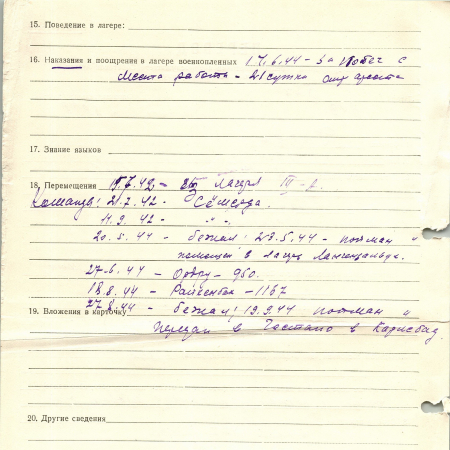 15. Поведение в лагере:
16. Наказания и поощрения в лагере военнопленных 17.6.44 - за побег с
места работы - 21 сутки ареста
17. Знание языков
18. Перемещения 15.7.42 - Лагерь III-
Команды: 21.7.42 - Сёмерда.
11.9.42 - " "
20.5.44 - бежал! 29.5.44 - пойман и
помещен в лагерь Лангензальца.
27.6.44 - Ордру - 950.
18.8.44 - Райкенбах - 1167
27.8.44 - бежал! 19.9.44 пойман и
19. Вложения в карточку
передан в Гестапо в Карлсбад.
20. Другие сведения